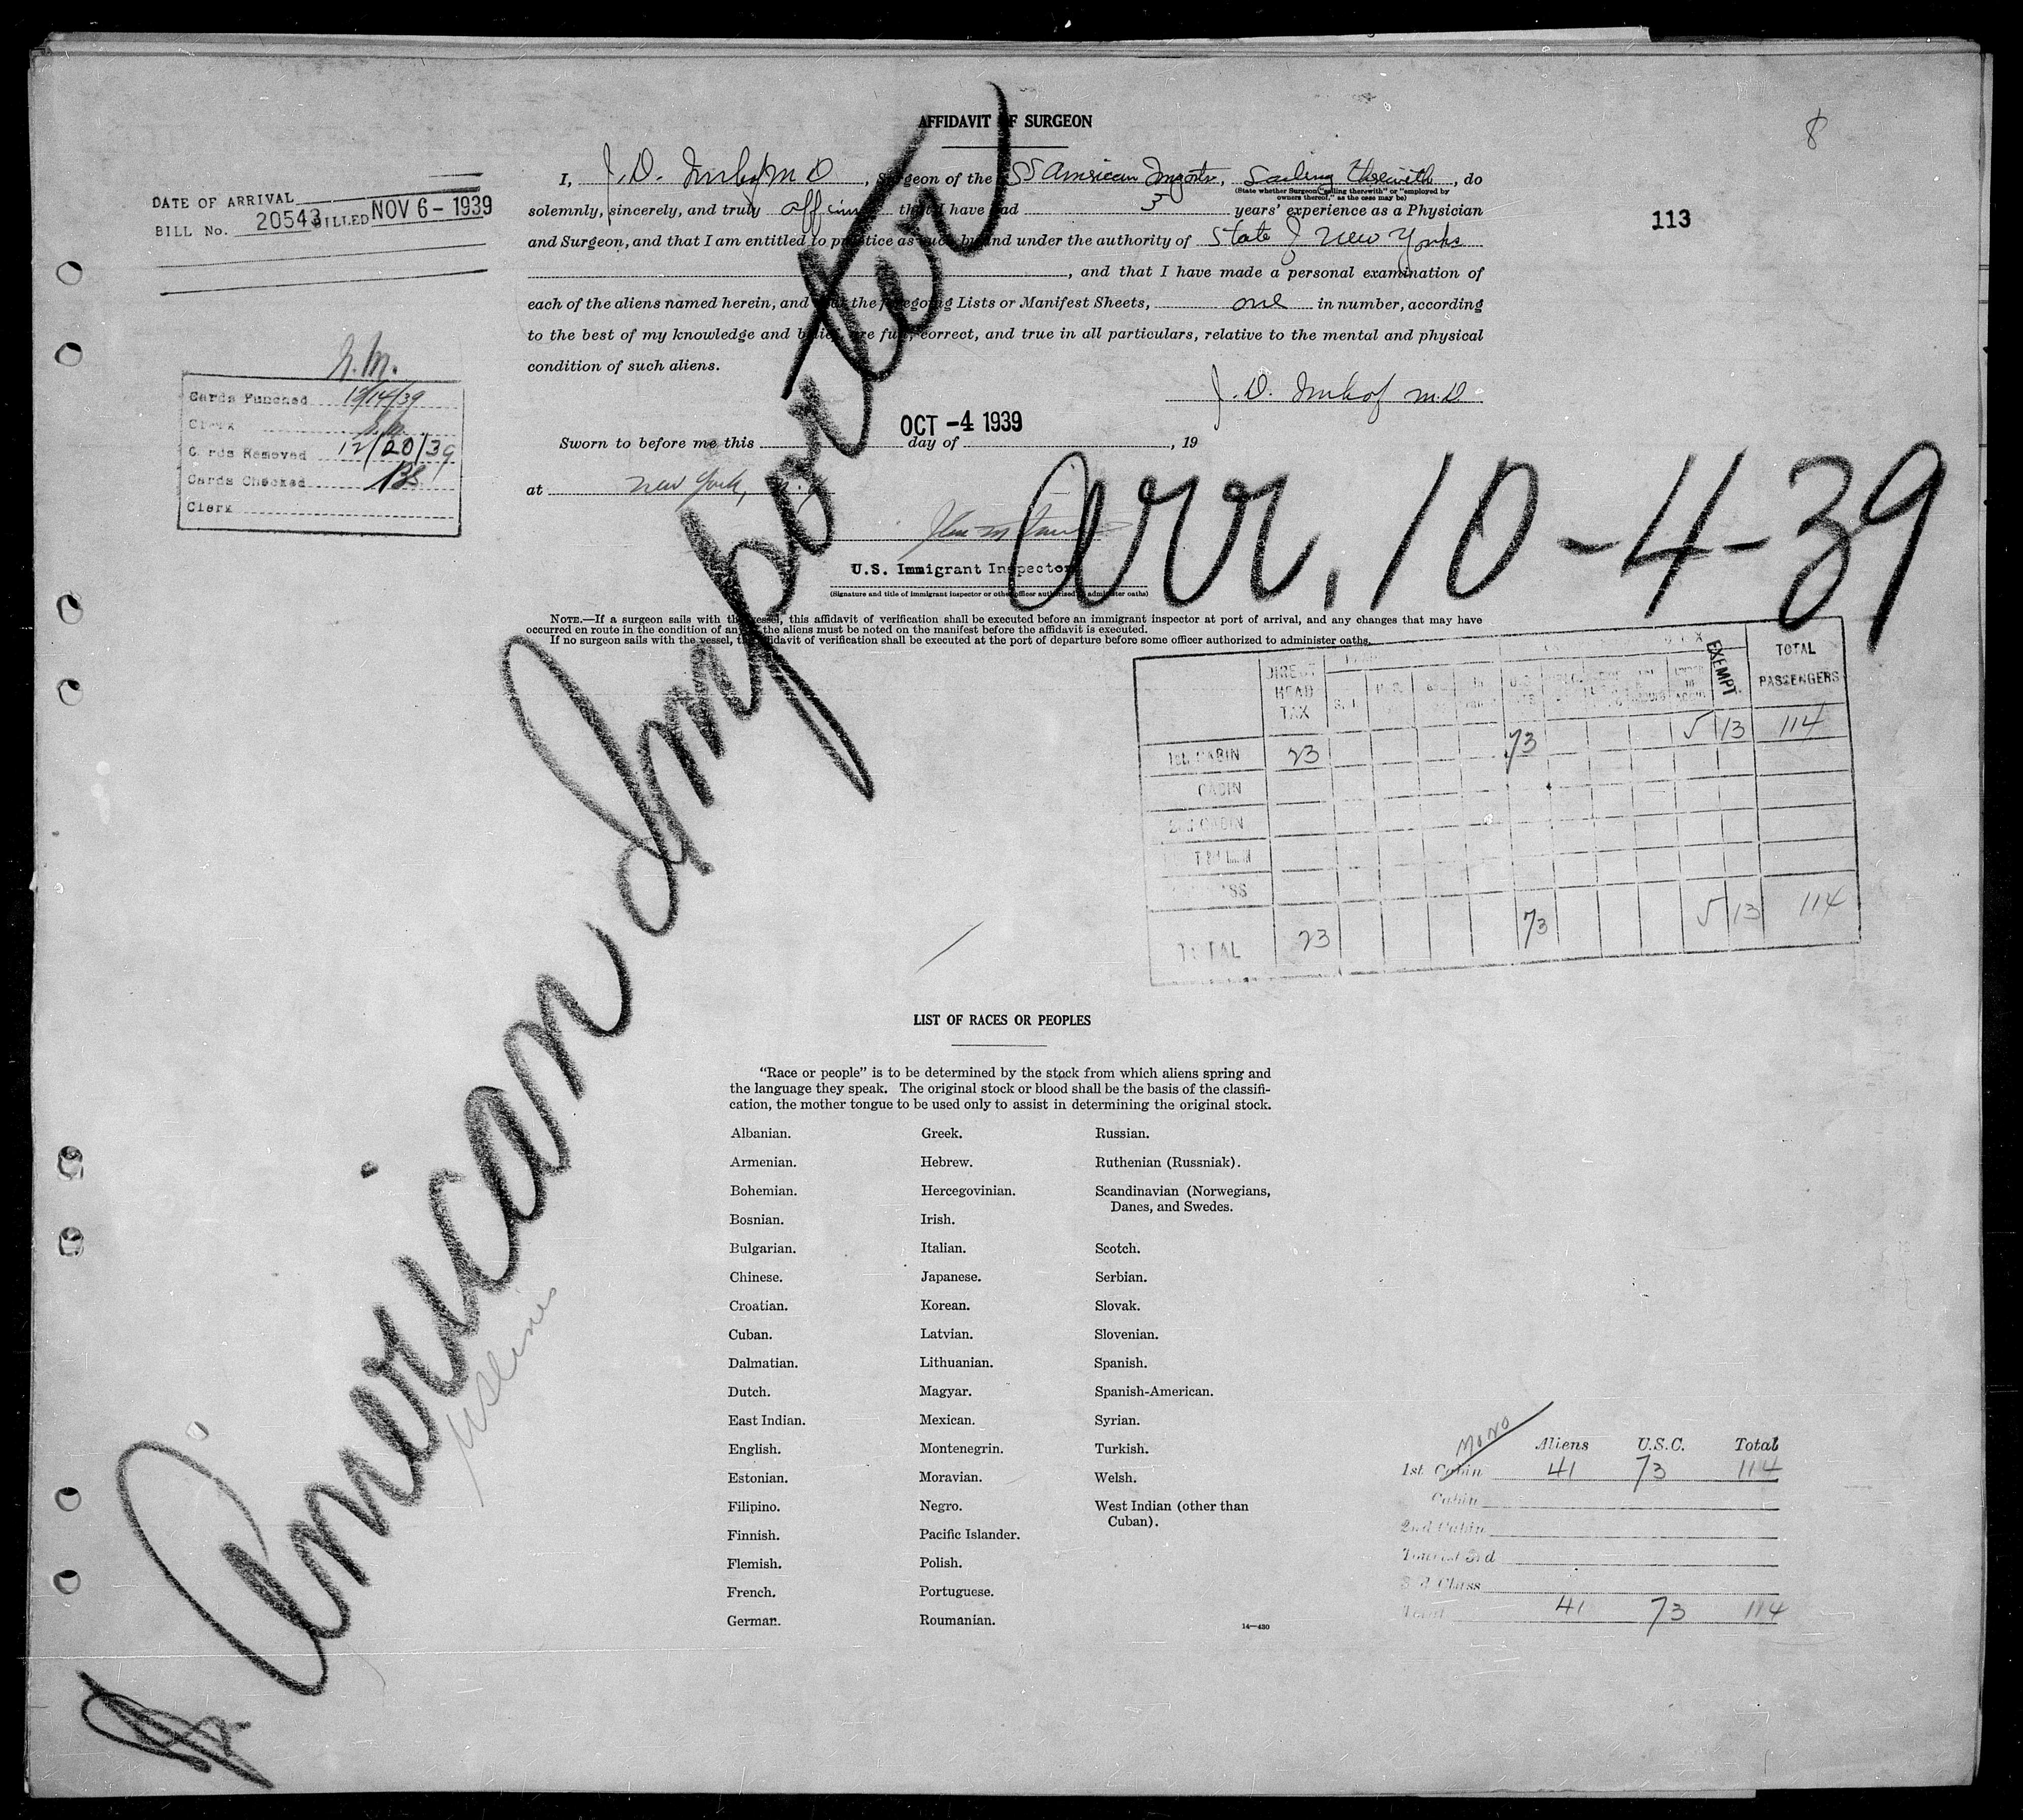 AFFIDAVIT OF SURGEON
8
I, J. D. Imhof M D, Surgeon of the SS American Importer, Sailing therewith, do
(State whether Surgeon "sailing therewith" or "employed by owners thereof," as the case may be)
solemnly, sincerely, and truly affirm that I have had 3 years' experience as a Physician
and Surgeon, and that I am entitled to practice as such by and under the authority of State of New York
, and that I have made a personal examination of
each of the aliens named herein, and that the foregoing Lists or Manifest Sheets, one in number, according
to the best of my knowledge and belief, are full, correct, and true in all particulars, relative to the mental and physical
condition of such aliens.
J. D. Imhof M.D.
OCT -4 1939
Sworn to before me this day of , 19
at New York, N.Y.
U.S. Immigrant Inspector
(Signature and title of immigrant inspector or other officer authorized to administer oaths)
NOTE.—If a surgeon sails with the vessel, this affidavit of verification shall be executed before an immigrant inspector at port of arrival, and any changes that may have
occurred en route in the condition of any of the aliens must be noted on the manifest before the affidavit is executed.
If no surgeon sails with the vessel, the affidavit of verification shall be executed at the port of departure before some officer authorized to administer oaths.
DATE OF ARRIVAL
BILL No. 20543 BILLED NOV 6 - 1939
113
Cards Punched 12/14/39
Clerk
Cards Removed 12/20/39
Cards Checked BS
Clerk
American Importer
arr. 10-4-39
US Lines
DIRECT HEAD TAX EXEMPT TOTAL PASSENGERS
1st CABIN 23 73 5 13 114
CABIN
2nd CABIN
TOTAL 23 73 5 13 114
LIST OF RACES OR PEOPLES
"Race or people" is to be determined by the stock from which aliens spring and
the language they speak. The original stock or blood shall be the basis of the classifi-
cation, the mother tongue to be used only to assist in determining the original stock.
Albanian.
Armenian.
Bohemian.
Bosnian.
Bulgarian.
Chinese.
Croatian.
Cuban.
Dalmatian.
Dutch.
East Indian.
English.
Estonian.
Filipino.
Finnish.
Flemish.
French.
German.
Greek.
Hebrew.
Hercegovinian.
Irish.
Italian.
Japanese.
Korean.
Latvian.
Lithuanian.
Magyar.
Mexican.
Montenegrin.
Moravian.
Negro.
Pacific Islander.
Polish.
Portuguese.
Roumanian.
Russian.
Ruthenian (Russniak).
Scandinavian (Norwegians,
Danes, and Swedes.
Scotch.
Serbian.
Slovak.
Slovenian.
Spanish.
Spanish-American.
Syrian.
Turkish.
Welsh.
West Indian (other than
Cuban).
14—430
Mono
Aliens U.S.C. Total
1st Cabin 41 73 114
Cabin
2nd Cabin
Tourist 3rd
3rd Class
Total 41 73 114